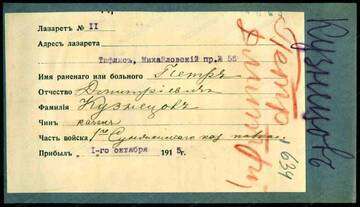 Лазаретъ № II
Адресъ лазарета
Тифлисъ, Михайловскій пр. № 55
Имя раненаго или больного Петръ
Отчество Дмитріевичъ
Фамилія Кузнецовъ
Чинъ
Часть войска 1го каз полка
Прибылъ 1-го октября 1915г.
Кузнецовъ
Петр
Дмитрій
1634